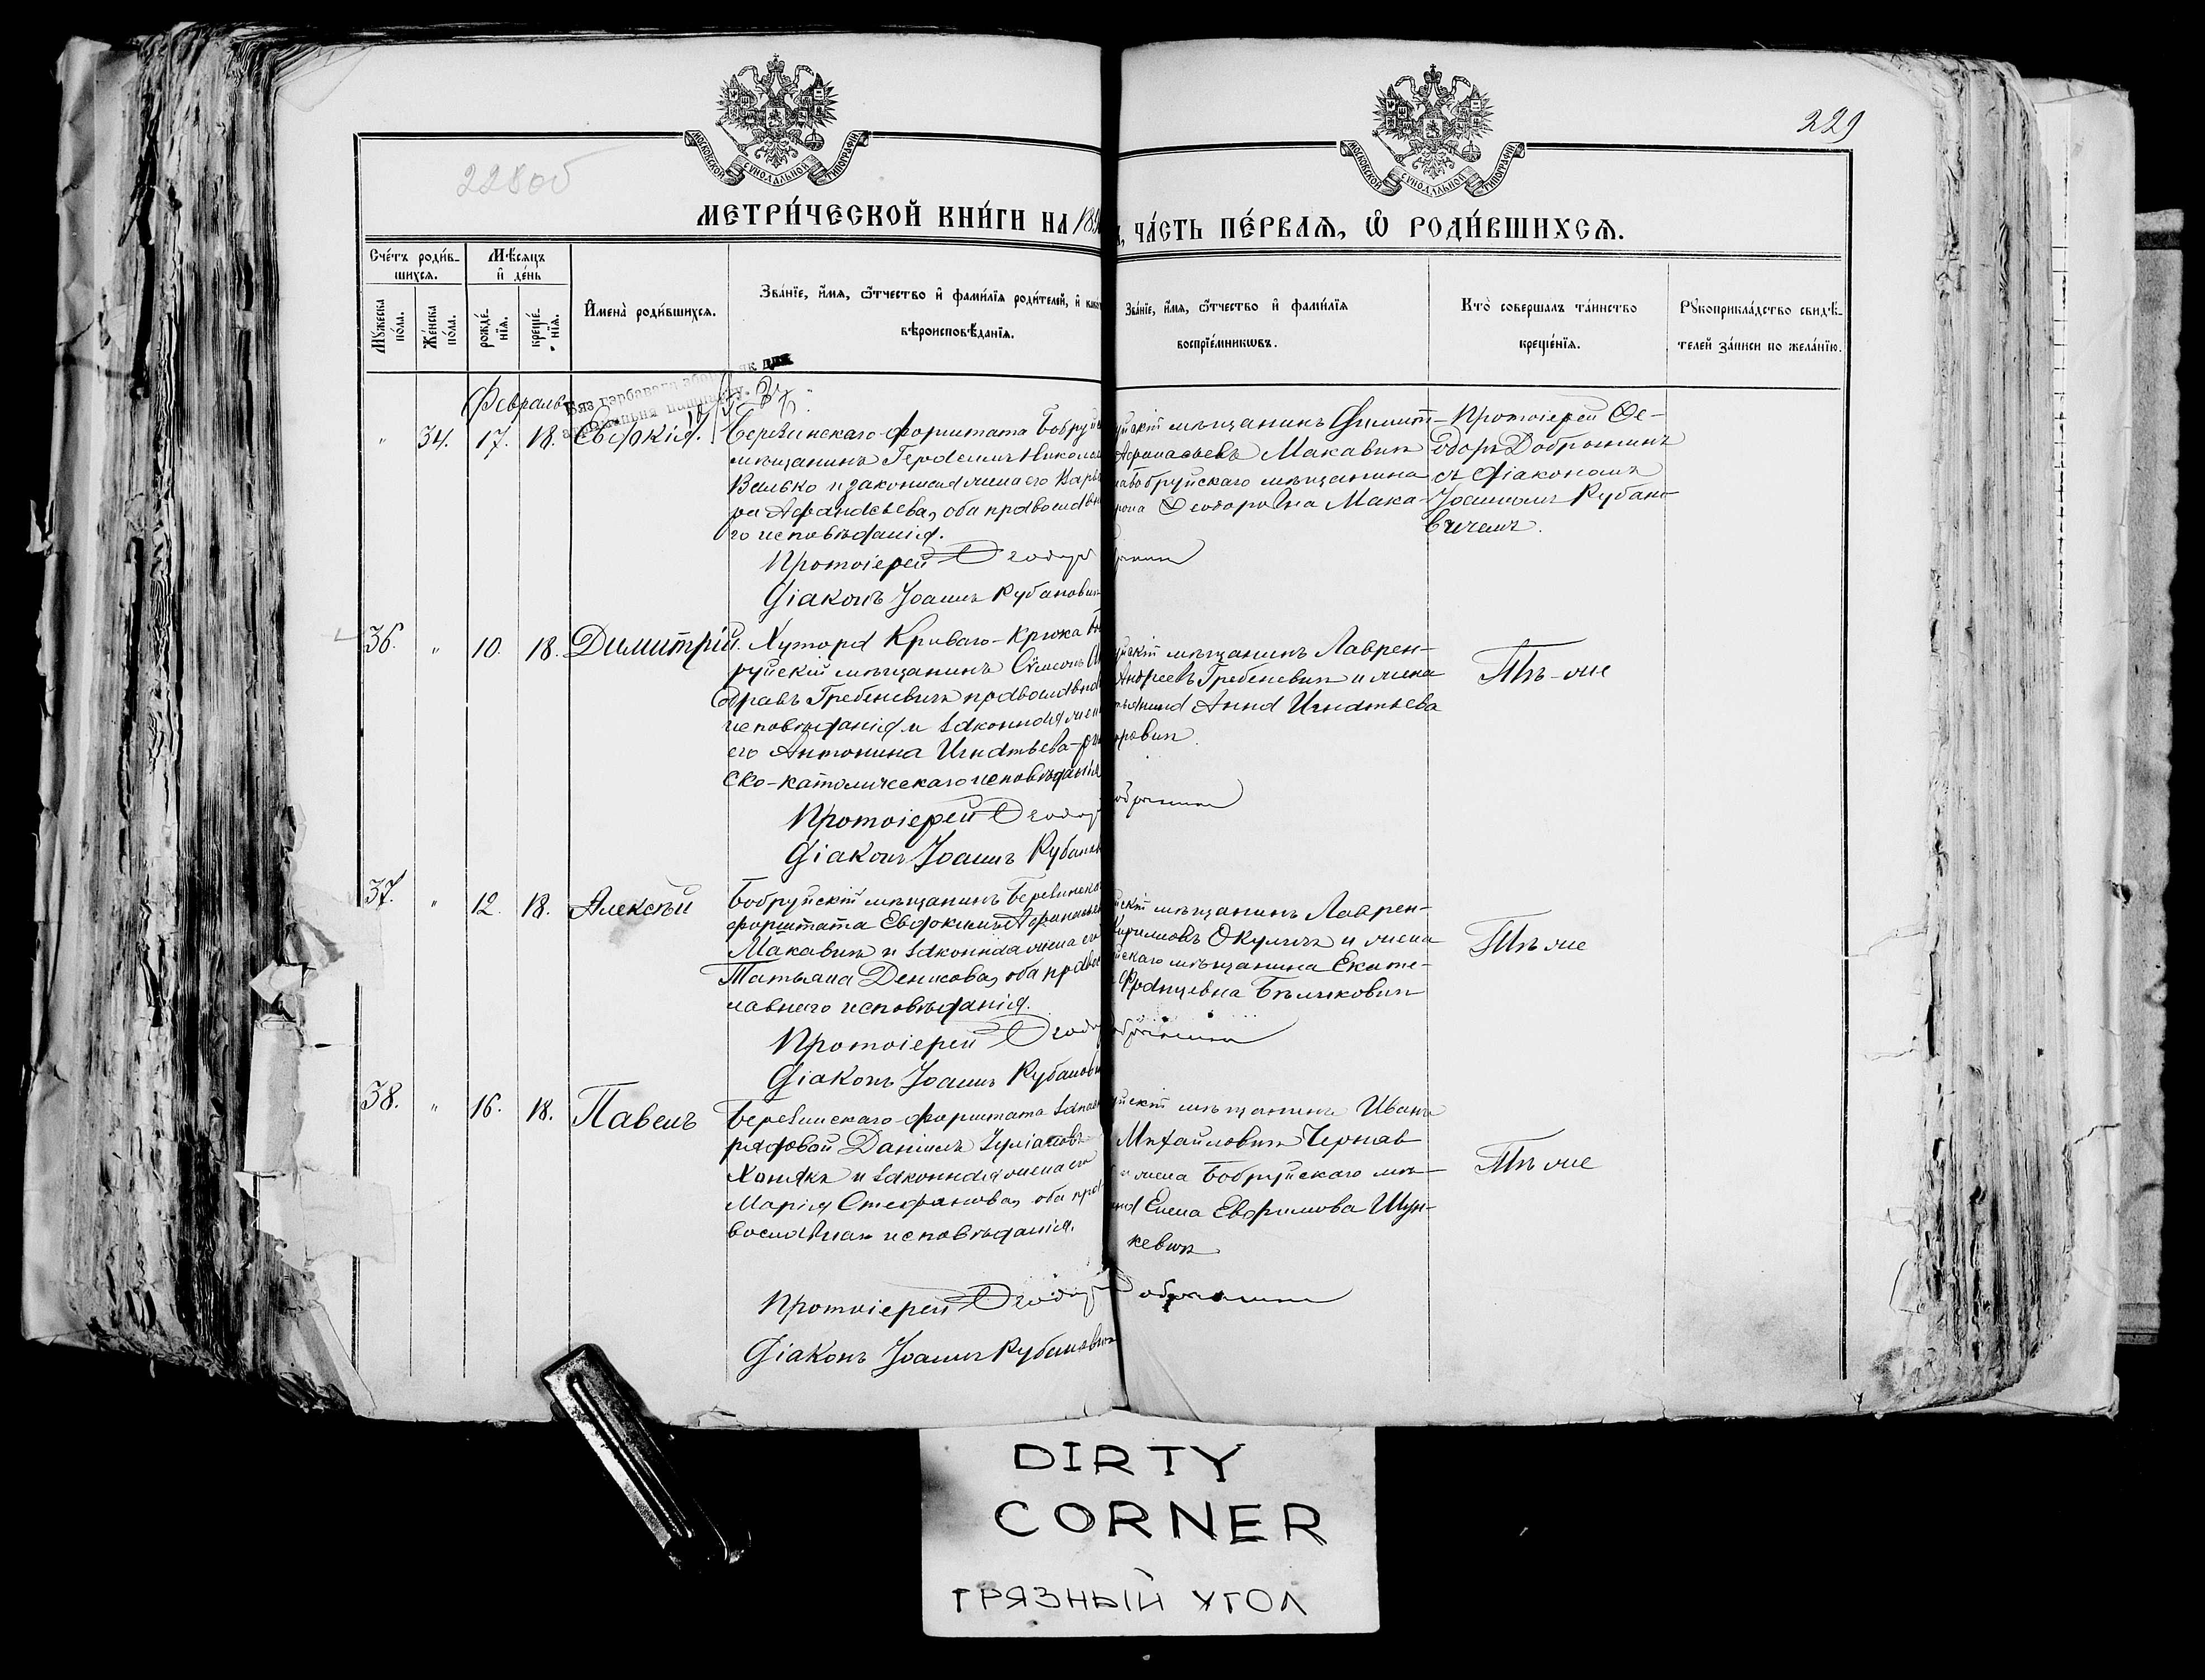 229
228об
МОСКОВСКОЙ СУНОДАЛЬНОЙ ТИПОГРАФІИ
МОСКОВСКОЙ СУНОДАЛЬНОЙ ТИПОГРАФІИ
МЕТРИ́ЧЕСКОЙ КНИ́ГИ НА 189
ЧА́СТЬ ПЕ́РВАѦ, Ѽ РОДИ́ВШИХСѦ.
Сче́тъ роди́вшихсѧ.
Мꙋ́жеска по́ла.
Же́нска по́ла.
Мѣ́сѧцъ и҆ де́нь
рожде́нїѧ.
креще́нїѧ.
И҆мена̀ роди́вшихсѧ.
Зва́нїе, и҆́мѧ, ѻ҆́тчество и҆ фами́лїѧ роди́телей, и҆ како
вѣроисповѣ́данїѧ.
Зва́нїе, и҆́мѧ, ѻ҆́тчество и҆ фами́лїѧ
воспрїе́мникωвъ.
Кто̀ совершалъ та́инство
креще́нїѧ.
Рꙋкоприкла́дство свидѣ́-
телей за́писи по жела́нїю.
Февраль
" 34. 17. 18. Евдокія.
Березинскаго форштата Бобруй
мѣщанинъ Николае
и законная жена его Варва
ра Афанасьева, оба православна
го исповѣданія.
Протоіерей Ѳеодоръ
Діаконъ Іоаннъ Рубанович
уйскій мѣщанинъ Димит-
Афанасьевъ Макавич
Бобруйскаго мѣщанина
Ѳеодоровна Мака-
Протоіерей Ѳе-
одоръ Добрынинъ
съ діакономъ
Іоанномъ Рубано-
вичемъ.
36. " 10. 18. Димитрій.
Хутора Криваго-Крюка Боб
руйскій мѣщанинъ Сѵмеонъ Ан
дреевъ Гребеневичъ православна
исповѣданія и законная жен
его Антонина Игнатьева-рим
ско-католическаго исповѣданія
Протоіерей Ѳеодор
Діаконъ Іоаннъ Рубанов
уйскій мѣщанинъ Лаврен-
Андреевъ Гребеневич и жена
Анна Игнатьева
обрынинъ
Тѣ-же
37. " 12. 18. Алексѣй
Бобруйскій мѣщанинъ Березинско
форштата Евдокимъ Афанасьев
Макавич и законная жена его
Татьяна Денисова, оба правос
лавнаго исповѣданія.
Протоіерей Ѳеодо
Діаконъ Іоаннъ Рубанови
йскій мѣщанинъ Лаврен-
Кириловъ Окуличъ и жена
йскаго мѣщанина Екате-
Францевна Бѣликович
обрынинъ
Тѣ же
38. " 16. 18. Павелъ
Березинскаго форштата запасн
рядовой Даніилъ
Хонякъ и законная жена его
Марія Стефанова, оба пра
вославнаго исповѣданія.
Протоіерей Ѳеодор
Діаконъ Іоаннъ Рубанович
уйскій мѣщанинъ Иванъ
Михайлович Черняв
и жена Бобруйскаго мѣ-
Елена Ефимова Шун-
кевич
Добрынинъ
Тѣ же
DIRTY
CORNER
ГРЯЗНЫЙ УГОЛ